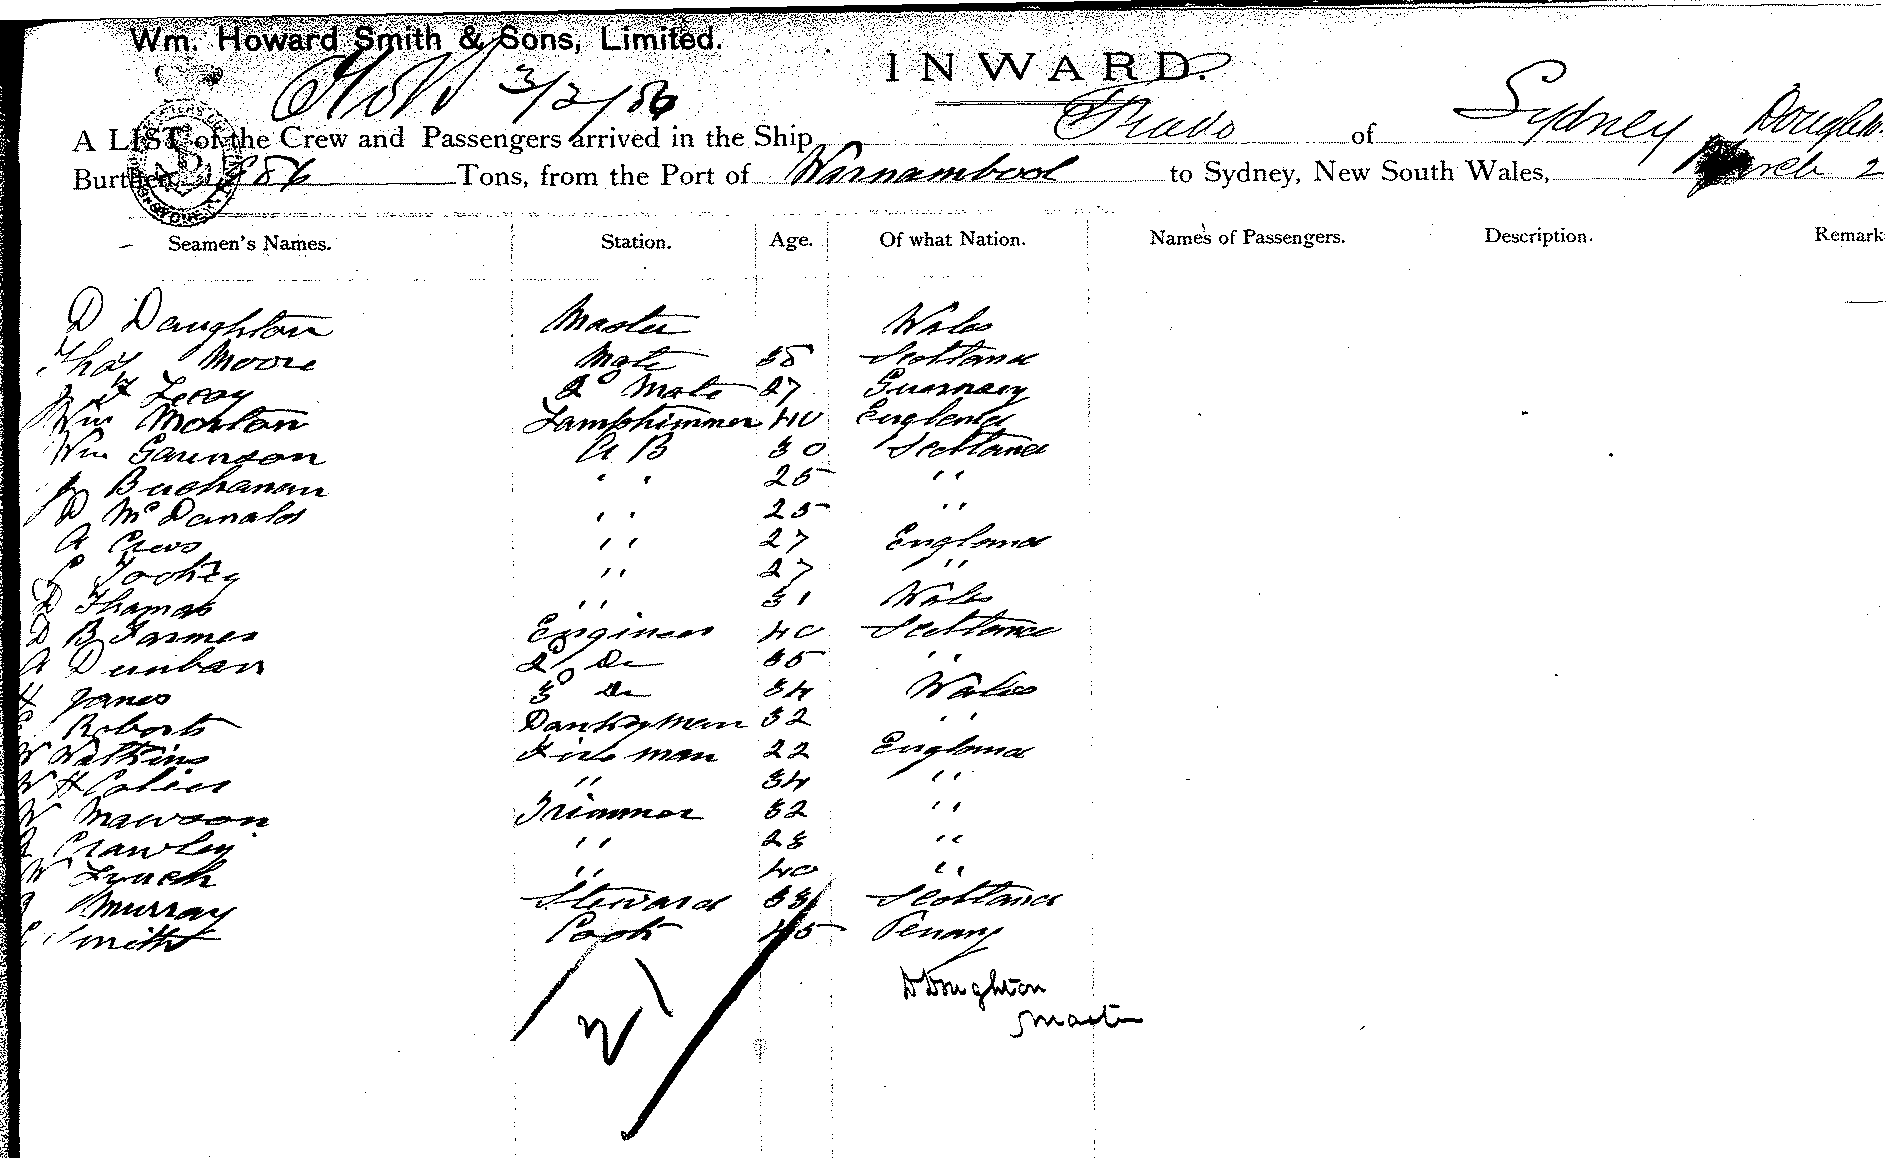 Wm. Howard Smith & Sons, Limited.
INWARD.
3/2/86
A LIST of the Crew and Passengers arrived in the Ship of Sydney
Burthen 986 Tons, from the Port of Warnambool to Sydney, New South Wales, March 2
Seamen's Names. Station. Age. Of what Nation. Names of Passengers. Description. Remark
D Daughton Master Wales
Thos Moore Mate 38 Scotland
Lecoy 2º Mate 27 Guernsey
Wm Morton Lamptrimmer 40 England
Wm Garinson A B 30 Scotland
J Buchanan " " 25 " "
D McDonald " " 25 " "
A Crews " " 27 England
Tookey " " 27 " "
D Thomas " " 31 Wales
D B Farmer Engineer 40 Scotland
A Dunbar 2º Do 35 " "
H Jones 3º Do 34 Wales
Roberts Donkeyman 32 " "
W Watkins Fireman 22 England
W H Colier " 34 " "
W Mawson Trimmer 32 " "
Crawley " " 28 " "
W Lynch " " 40 " "
Murray Steward 33 Scotland
Smith Cook 45 Penang
D Doughton
Master